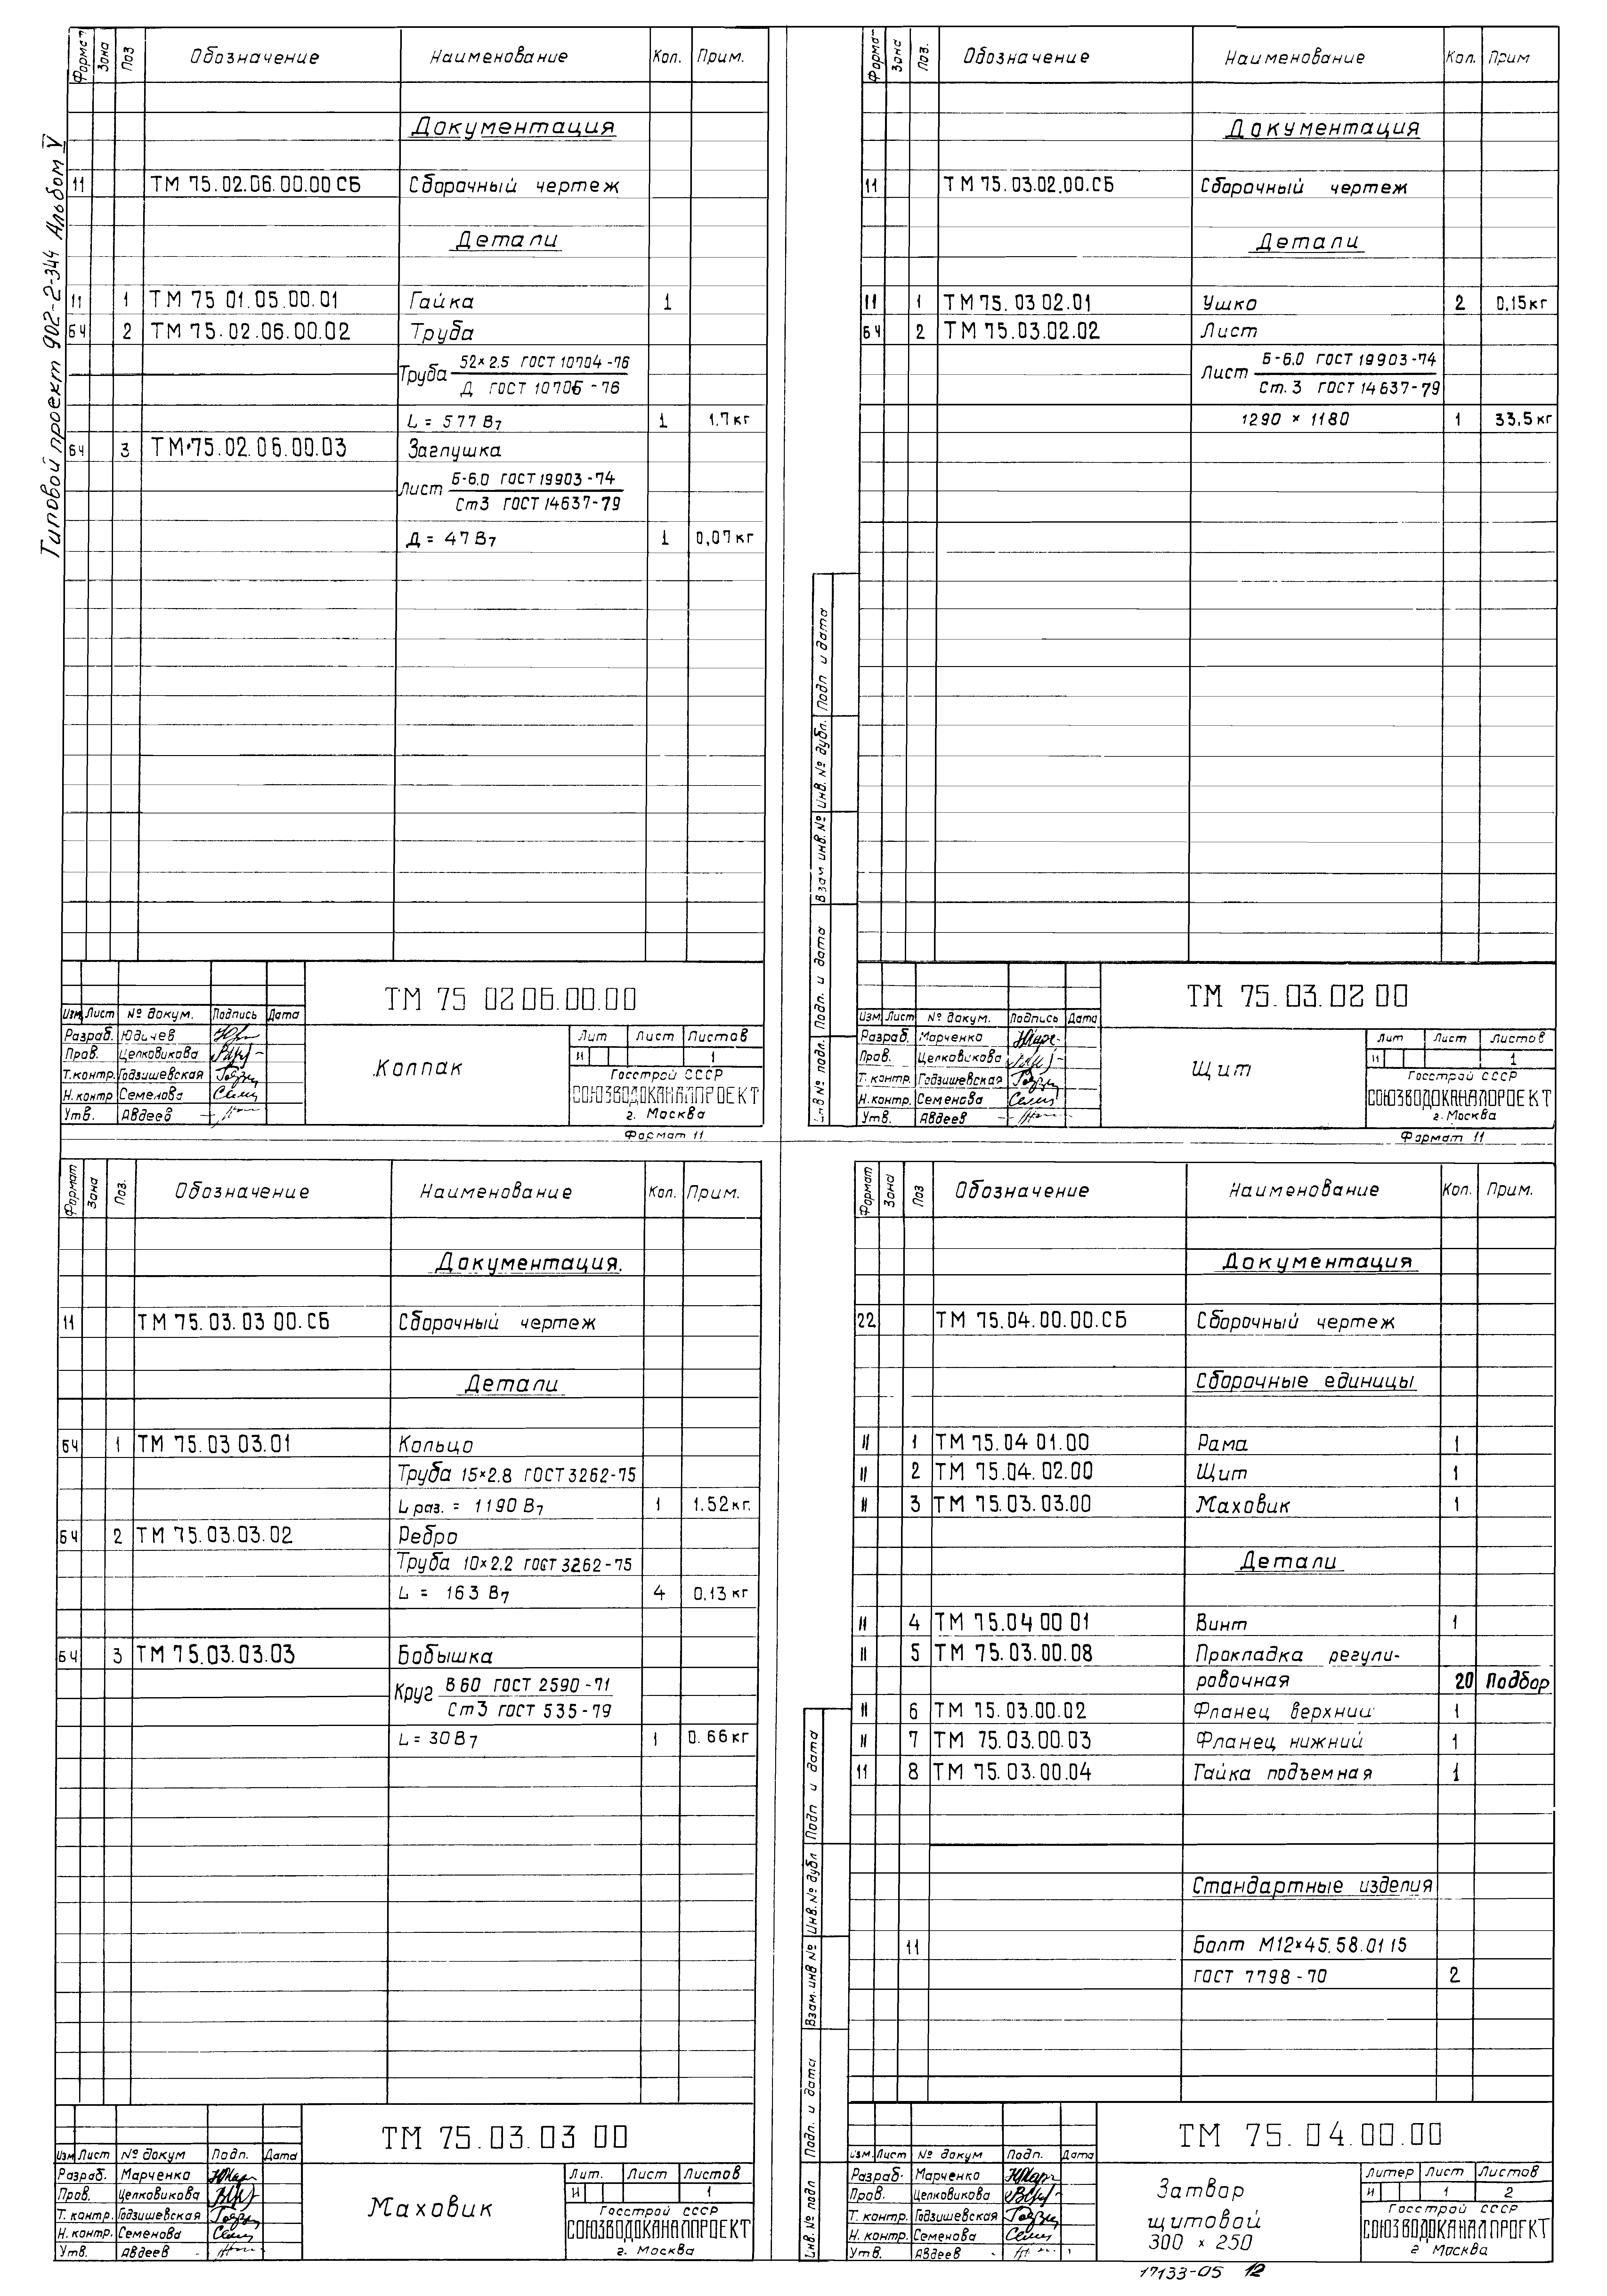 Типовой проект 902-2-344 Альбом V
Формат Зона Поз Обозначение Наименование Кол. Прим.
Документация
11 ТМ 75.02.06.00.00 СБ Сборочный чертеж
Детали
11 1 ТМ 75 01.05.00.01 Гайка 1
БЧ 2 ТМ 75.02.06.00.02 Труба
Труба 52×2.5 ГОСТ 10704-76
Д ГОСТ 10705-76
L = 577 В7 1 1.7кг
БЧ 3 ТМ 75.02.06.00.03 Заглушка
Лист Б-6.0 ГОСТ 19903-74
Ст3 ГОСТ 14637-79
Д = 47 В7 1 0,07кг
ТМ 75 02 06.00.00
Изм Лист № докум. Подпись Дата
Разраб. Юдичев
Пров. Целковикова
Т.контр. Годзишевская
Н.контр Семенова
Утв. Авдеев
Колпак
Лит Лист Листов
И 1
Госстрой СССР
СОЮЗВОДОКАНАЛПРОЕКТ
г. Москва
Формат 11
Форма- Зона Поз. Обозначение Наименование Кол. Прим
Документация
11 ТМ 75.03.02.00.СБ Сборочный чертеж
Детали
11 1 ТМ 75.03 02.01 Ушко 2 0,15кг
БЧ 2 ТМ 75.03.02.02 Лист
Лист Б-6.0 ГОСТ 19903-74
Ст.3 ГОСТ 14637-79
1290 × 1180 1 33,5кг
Подп и дата
Инв. № дубл.
Взам инв. №
Подп. и дата
Инв № подл.
ТМ 75.03.02 00
Изм Лист № докум. Подпись Дата
Разраб. Марченко
Пров. Целковикова
Т. контр. Годзишевская
Н. контр. Семенова
Утв. Авдеев
Щит
Лит Лист Листов
И 1
Госстрой СССР
СОЮЗВОДОКАНАЛПРОЕКТ
г. Москва
Формат 11
Формат Зона Поз. Обозначение Наименование Кол. Прим.
Документация.
11 ТМ 75.03.03 00.СБ Сборочный чертеж
Детали
БЧ 1 ТМ 75.03 03.01 Кольцо
Труба 15×2.8 ГОСТ 3262-75
L раз. = 1190 В7 1 1.52кг.
БЧ 2 ТМ 75.03.03.02 Ребро
Труба 10×2.2 ГОСТ 3262-75
L = 163 В7 4 0.13кг
БЧ 3 ТМ 75.03.03.03 Бобышка
Круг В60 ГОСТ 2590-71
Ст3 ГОСТ 535-79
L = 30В7 1 0.66кг
ТМ 75.03.03 00
Изм Лист № докум Подп. Дата
Разраб. Марченко
Пров. Целковикова
Т. контр. Годзишевская
Н. контр. Семенова
Утв. Авдеев
Маховик
Лит. Лист Листов
И 1
Госстрой СССР
СОЮЗВОДОКАНАЛПРОЕКТ
г. Москва
Формат Зона Поз Обозначение Наименование Кол. Прим.
Документация
22 ТМ 75.04.00.00.СБ Сборочный чертеж
Сборочные единицы
11 1 ТМ 75.04 01.00 Рама 1
11 2 ТМ 75.04.02.00 Щит 1
11 3 ТМ 75.03.03.00 Маховик 1
Детали
11 4 ТМ 75.04 00 01 Винт 1
11 5 ТМ 75.03.00.08 Прокладка регули-
ровочная 20 Подбор
11 6 ТМ 75.03.00.02 Фланец верхний 1
11 7 ТМ 75.03.00.03 Фланец нижний 1
11 8 ТМ 75.03.00.04 Гайка подъемная 1
Стандартные изделия
11 Болт М12×45.58.01 15
ГОСТ 7798-70 2
Подп и дата
Инв. № дубл
Взам. инв №
Подп. и дата
Инв. № подл
ТМ 75.04.00.00
Изм. Лист № докум Подп. Дата
Разраб. Марченко
Пров. Целковикова
Т. контр. Годзишевская
Н. контр. Семенова
Утв. Авдеев
Затвор
щитовой
300 × 250
Литер Лист Листов
И 1 2
Госстрой СССР
СОЮЗВОДОКАНАЛПРОЕКТ
г Москва
17133-05 12